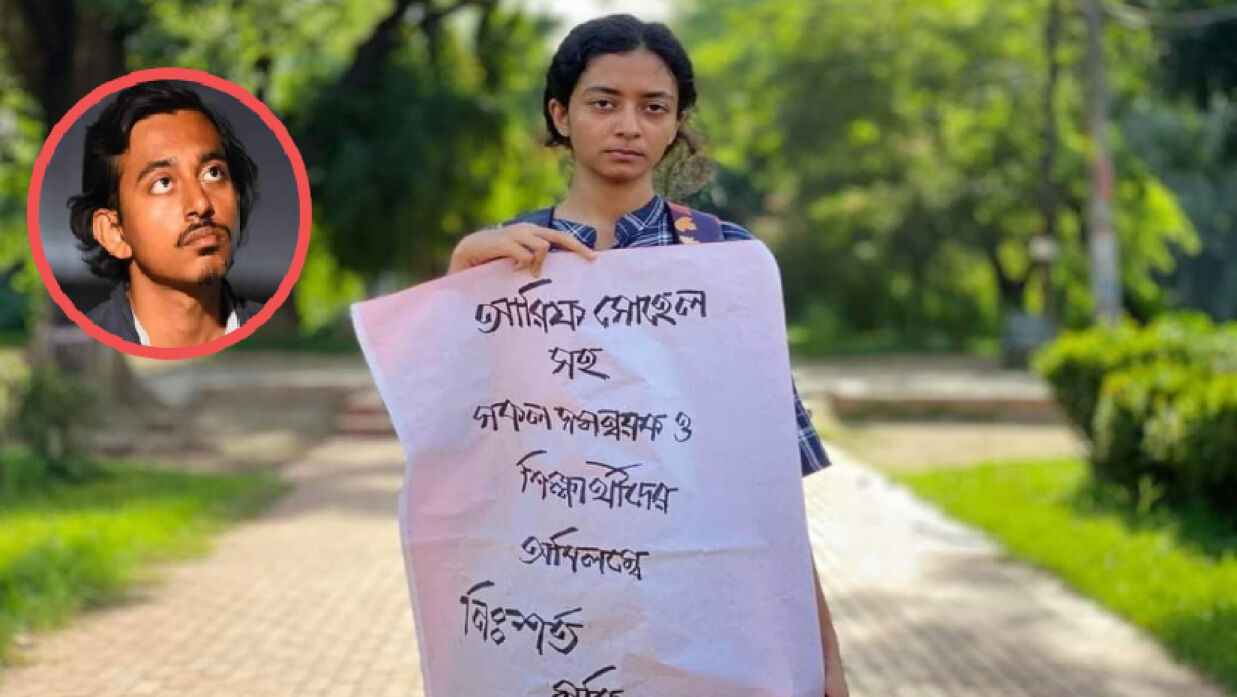 আরিফ সোহেল
সহ
সকল সমন্বয়ক ও
শিক্ষার্থীদের
অবিলম্বে
নিঃশর্ত